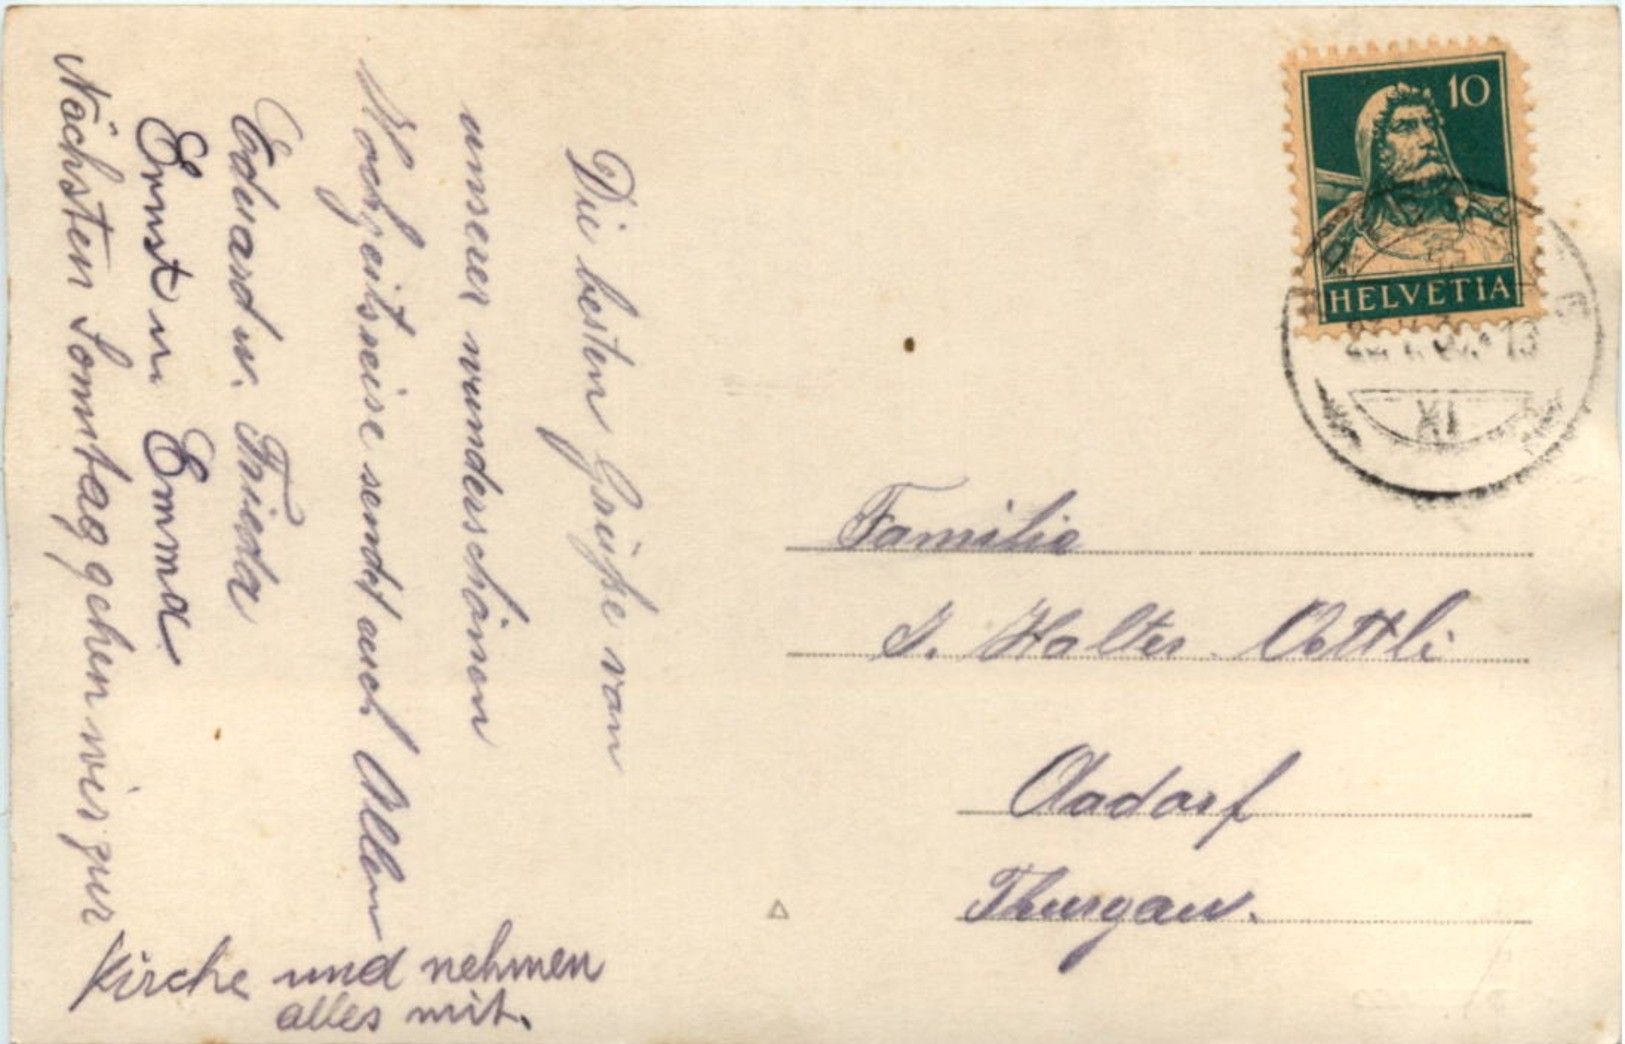 Die besten Grüße von
unserer wunderschönen
Hochzeitsreise sendet euch Allen
Eduard u. Frieda
Ernst u Emma
Nächsten Sonntag gehen wir zur
Kirche und nehmen
alles mit.
10
HELVETIA
XI
Familie
J. Halter-Oettli
Aadorf
Thurgau.